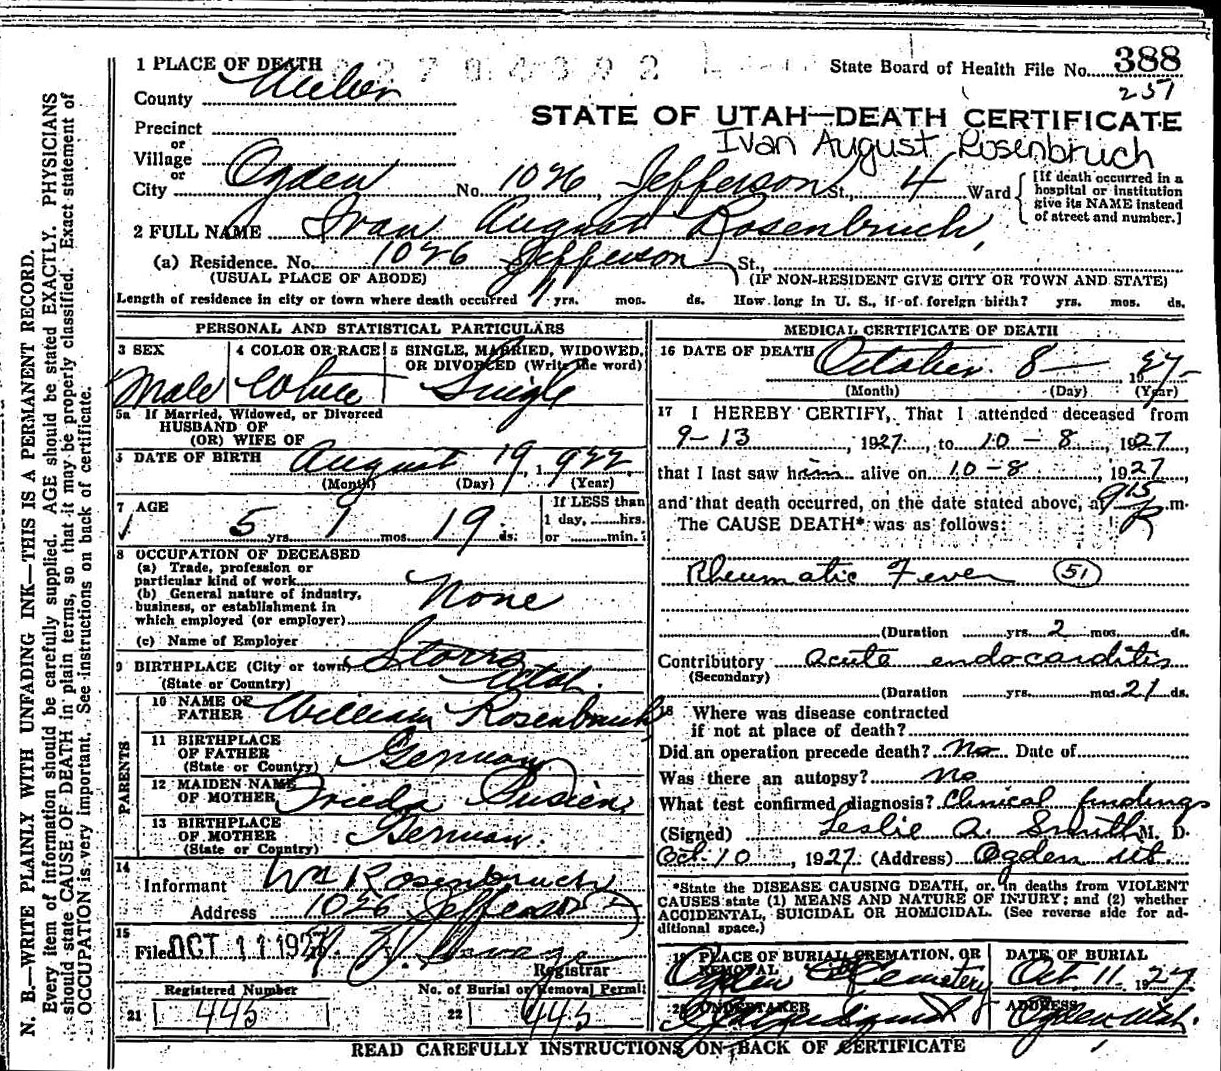 1 PLACE OF DEATH
State Board of Health File No. 388
County Weber
257
STATE OF UTAH—DEATH CERTIFICATE
Ivan August Rosenbruch
Precinct
or
Village
or
City Ogden No. 1026 Jefferson St., 4 Ward
[If death occurred in a hospital or institution give its NAME instead of street and number.]
2 FULL NAME Ivan August Rosenbruch
(a) Residence. No. 1026 Jefferson St.,
(USUAL PLACE OF ABODE) (IF NON-RESIDENT GIVE CITY OR TOWN AND STATE)
Length of residence in city or town where death occurred yrs. mos. ds. How long in U. S., if of foreign birth? yrs. mos. ds.
PERSONAL AND STATISTICAL PARTICULARS
3 SEX Male
4 COLOR OR RACE White
5 SINGLE, MARRIED, WIDOWED, OR DIVORCED (Write the word) Single
5a If Married, Widowed, or Divorced
HUSBAND OF
(OR) WIFE OF
6 DATE OF BIRTH August 19 1922
(Month) (Day) (Year)
7 AGE 5 yrs. 1 mos. 19 ds.
If LESS than
1 day, hrs.
or min.
8 OCCUPATION OF DECEASED
(a) Trade, profession or
particular kind of work
(b) General nature of industry,
business, or establishment in
which employed (or employer)
None
(c) Name of Employer
9 BIRTHPLACE (City or town) Storrs
(State or Country) Utah.
PARENTS
10 NAME OF FATHER William Rosenbruch
11 BIRTHPLACE OF FATHER
(State or Country) German
12 MAIDEN NAME OF MOTHER Frieda
13 BIRTHPLACE OF MOTHER
(State or Country) German.
14 Informant Wm Rosenbruch
Address 1026 Jefferson
15 Filed OCT 11 1927
Registrar
Registered Number No. of Burial or Removal Permit
21 445 22 445
MEDICAL CERTIFICATE OF DEATH
16 DATE OF DEATH October 8 — 1927
(Month) (Day) (Year)
17 I HEREBY CERTIFY, That I attended deceased from
9-13, 1927, to 10-8, 1927
that I last saw him alive on 10-8, 1927
and that death occurred, on the date stated above, at 9 15 P.m.
The CAUSE DEATH* was as follows:
Rheumatic Fever (51)
(Duration yrs. 2 mos. ds.
Contributory acute endocarditis
(Secondary)
(Duration yrs. mos. 21 ds.
18 Where was disease contracted
if not at place of death?
Did an operation precede death? No Date of
Was there an autopsy? No
What test confirmed diagnosis? Clinical findings
(Signed) Leslie A. Smith M. D.
Oct. 10, 1927 (Address) Ogden Ut.
*State the DISEASE CAUSING DEATH, or, in deaths from VIOLENT
CAUSES state (1) MEANS AND NATURE OF INJURY; and (2) whether
ACCIDENTAL, SUICIDAL OR HOMICIDAL. (See reverse side for ad-
ditional space.)
19 PLACE OF BURIAL, CREMATION, OR REMOVAL Ogden Cemetery
DATE OF BURIAL Oct. 11, 1927
20 UNDERTAKER
ADDRESS Ogden, Utah.
READ CAREFULLY INSTRUCTIONS ON BACK OF CERTIFICATE
N. B.—WRITE PLAINLY WITH UNFADING INK—THIS IS A PERMANENT RECORD.
Every item of information should be carefully supplied. AGE should be stated EXACTLY. PHYSICIANS
should state CAUSE OF DEATH in plain terms, so that it may be properly classified. Exact statement of
OCCUPATION is very important. See instructions on back of certificate.